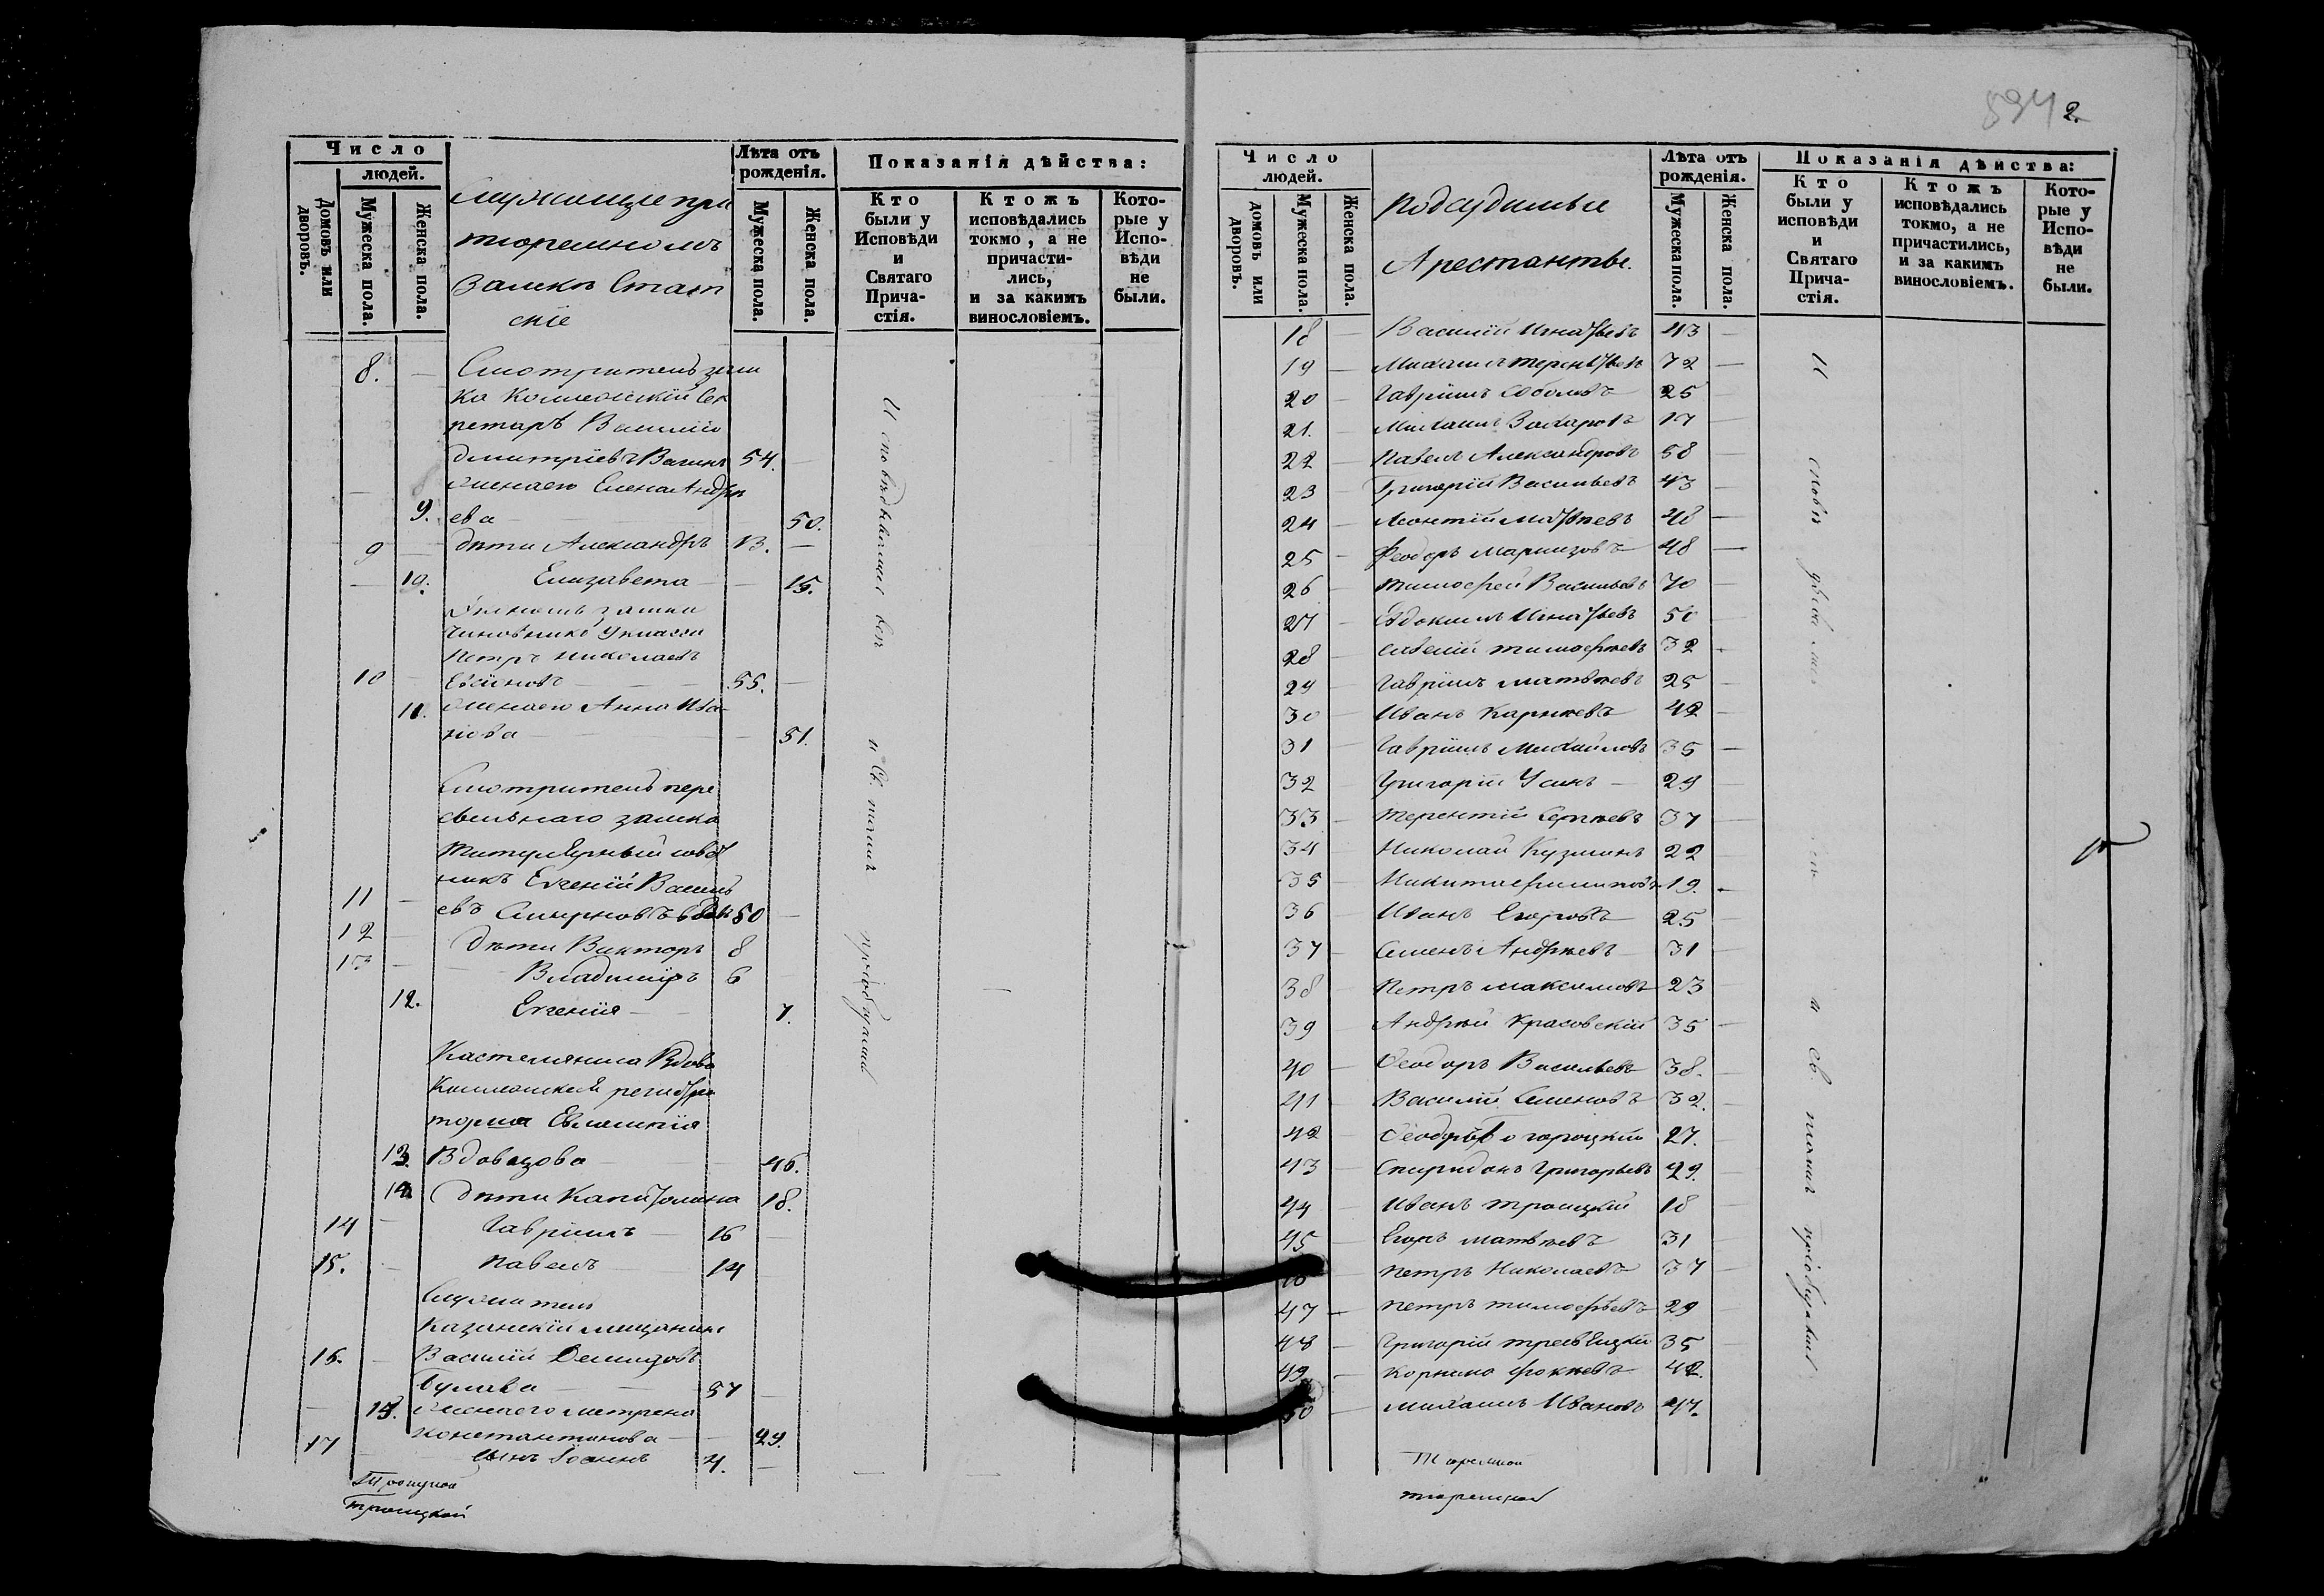 Число
людей.
Домовъ или дворовъ.
Мужеска пола.
Женска пола.
Служащіе при
тюремномъ
Замкѣ Статскіе
Лѣта отъ рожденія.
Мужеска пола.
Женска пола.
Показанія дѣйства:
Кто были у Исповѣди и Святаго Причастія.
Ктожъ исповѣдались токмо, а не причастились, и за какимъ винословіемъ.
Которые у Исповѣди не были.
8. — Смотритель зам
ка Коллежскій Сек
ретарь Василій
Дмитріевъ Вагинъ 54. —
жена его Елена Андре
9. ева — 50.
9 — дѣти Александръ 13. —
— 10. Елизавета — 15.
чиновникъ
Петръ Николаевъ
10 — 55. —
11. жена его Анна Ива
нова — 51.
Смотритель пере
сыльнаго замка
Титулярный совѣт
никъ Евгеній Василь
11 — евъ Смирновъ вдов 50 —
12 — дѣти Викторъ 8
13 — Владиміръ 6 —
12. Евгенія — 7.
Кастелянша Вдова
Коллежская регистра
торша Евлампія
13. Вдовазова — 46.
14. дѣти Капитолина 18.
14 — Гавріилъ — 16 —
15. — Павелъ — 14
Служитель
Казанскій мещанинъ
16. — Василій Демидовъ
57 —
— 15. жена его Матрена
Константинова — 29.
17 сынъ Іоаннъ 4. —
Троицкой
Исповѣдывались всѣ и Св. тайнъ пріобщились
594 2.
Число
людей.
домовъ или дворовъ.
Мужеска пола.
Женска пола.
Подсудимые
Арестанты.
Лѣта отъ рожденія.
Мужеска пола.
Женска пола.
Показанія дѣйства:
Кто были у исповѣди и Святаго Причастія.
Ктожъ исповѣдались токмо, а не причастились, и за какимъ винословіемъ.
Которые у Исповѣди не были.
18 — Василій Игнатьевъ 43 —
19 — Михаилъ Терентьевъ 72 —
20 — Гавріилъ Соболевъ 25
21. — Михаилъ Захаровъ 17 —
22 — Павелъ Александровъ 58 —
23 — Григорій Васильевъ 43 —
24 — Леонтій Матвѣевъ 48 —
25 — Феодоръ 48 —
26 — Тимофей Васильевъ 70 —
27 — Евдокимъ Игнатьевъ 50 —
28 — Тимофѣевъ 32 —
29 — Гавріилъ Матвѣевъ 25 —
30 — Иванъ Карпѣевъ 42 —
31 — Гавріилъ Михайловъ 35 —
32 — Григорій Усинъ — 29 —
33 — Терентій Сергѣевъ 37 —
34 — Николай Кузминъ 22 —
35 — Никита Филиповъ 19. —
36 — Иванъ Егоровъ 25 —
37 — Семенъ Андрѣевъ 31 —
38 — Петръ Максимовъ 23 —
39 — Андрей Красовскій 35 —
40 — Феодоръ Васильевъ 38. —
41 — Василій Семеновъ 32. —
42 — Феодоръ 27. —
43 — Спиридонъ Григорьевъ 29. —
44 — Иванъ Троицкій 18 —
45 — Егоръ Матвѣевъ 31 —
46 — Петръ Николаевъ 37 —
47 — Петръ Тимофѣевъ 29 —
48 — Григорій 35 —
49 — Корнило Фокѣевъ 42. —
50 — Михаилъ Ивановъ 47. —
Тюремной
тюремной
Исповѣдывались и св. тайнъ пріобщились